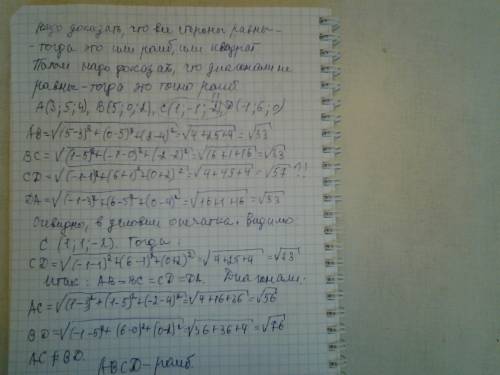 Надо доказать, что все стороны равны-
- тогда это или ромб, или квадрат
Потом надо доказать, что диагонали не
равны - тогда это точно ромб
A(3;5;4), B(5;0;2), C(1;-1;-2), D(-1;6;0)
AB=√(5-3)²+(0-5)²+(2-4)²=√4+25+4=√33
BC=√(1-5)²+(-1-0)²+(-2-2)²=√16+1+16=√33
CD=√(-1-1)²+(6+1)²+(0+2)²=√4+49+4=√57 ?!
DA=√(-1-3)²+(6-5)²+(0-4)²=√16+1+16=√33
Очевидно, в условии опечатка. Видимо
C (1;1;-2). Тогда:
CD=√(-1-1)²+(6-1)²+(0+2)²=√4+25+4=√33
Итак: AB=BC=CD=DA. Диагонали.
AC=√(1-3)²+(1-5)²+(-2-4)²=√4+16+36=√56
BD=√(-1-5)²+(6-0)²+(0-2)²=√36+36+4=√76
AC≠BD.
ABCD-ромб.